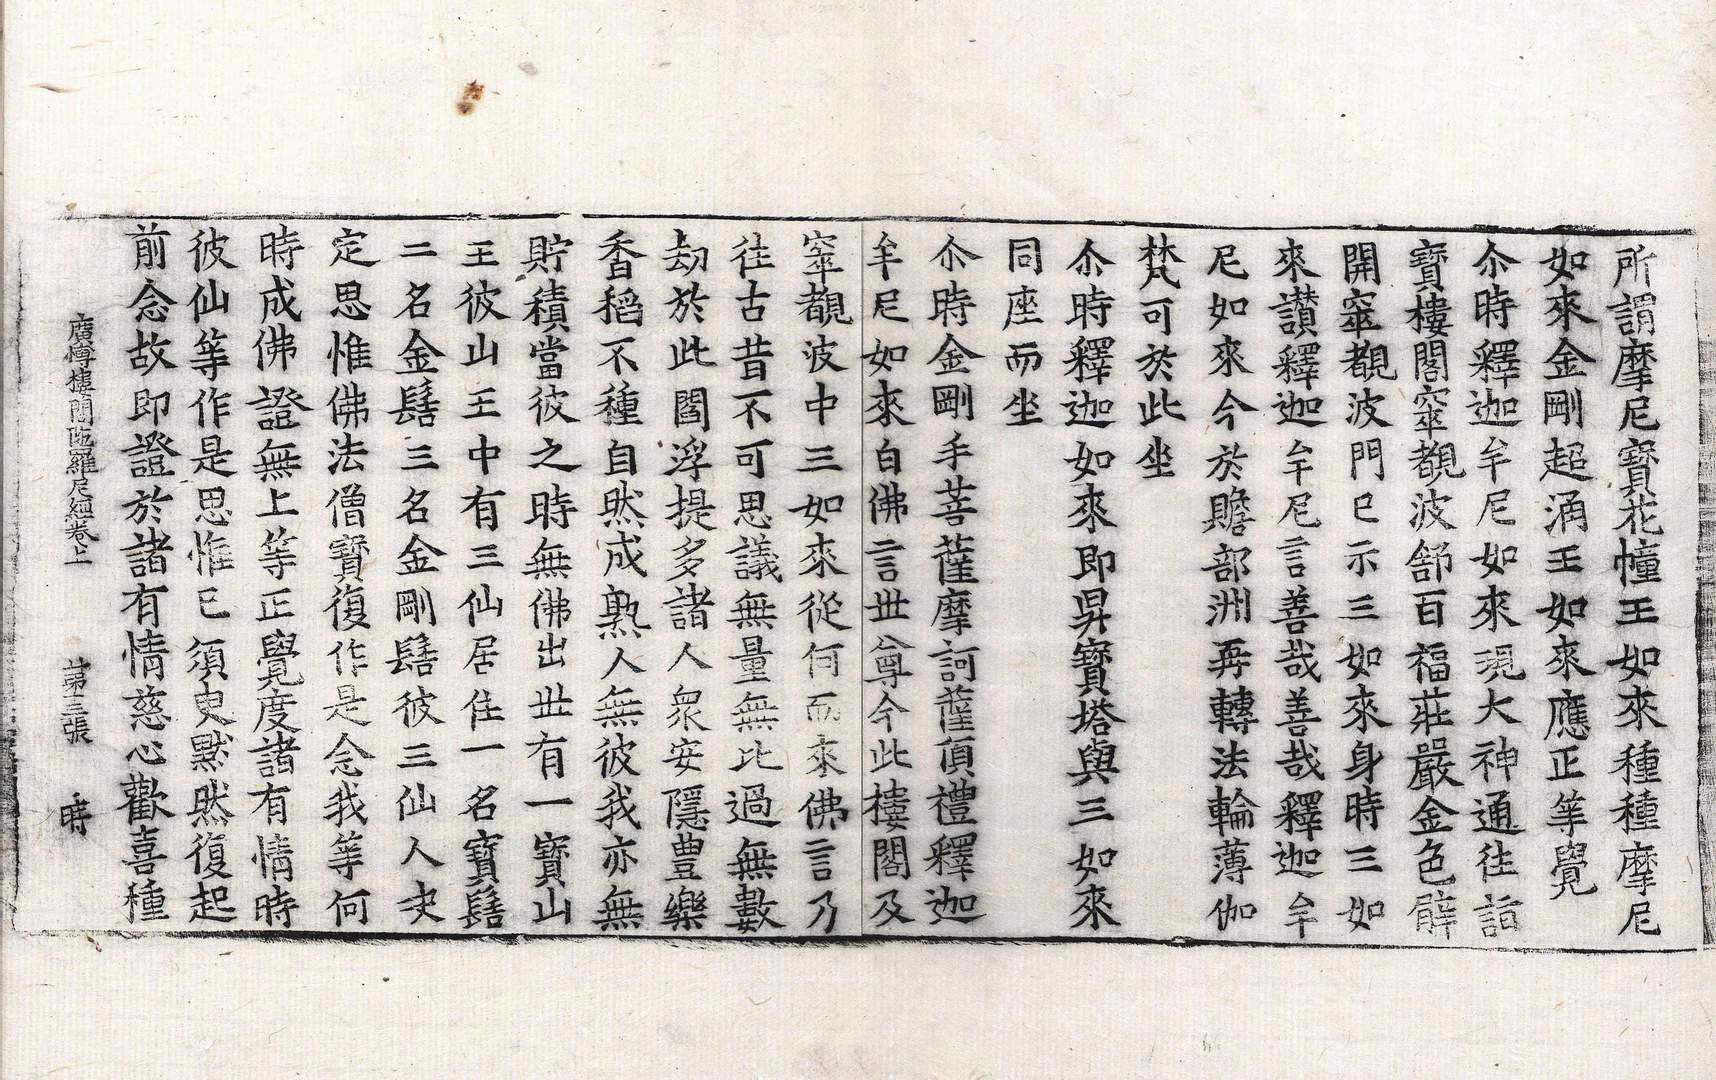 所謂摩尼寶花幢王如來種種摩尼
如來金剛超涌王如來應正等覺
尒時釋迦牟尼如來現大神通往詣
寶樓閣窣覩波舒百福莊嚴金色臂
開窣覩波門已示三如來身時三如
來讃釋迦牟尼言善哉善哉釋迦牟
尼如來今於贍部洲再轉法輪薄伽
梵可於此坐
尒時釋迦如來即昇寶塔與三如來
同座而坐
尒時金剛手菩薩摩訶薩頂禮釋迦
牟尼如來白佛言世尊今此樓閣及
窣覩波中三如來從何而來佛言乃
往古昔不可思議無量無比過無數
劫於此閻浮提多諸人衆安隱豊樂
香稻不種自然成熟人無彼我亦無
貯積當彼之時無佛出世有一寶山
王彼山王中有三仙居住一名寶髻
二名金髻三名金剛髻彼三仙人決
定思惟佛法僧寶復作是念我等何
時成佛證無上等正覺度諸有情時
彼仙等作是思惟已須臾默然復起
前念故即證於諸有情慈心歡喜種
廣博樓閣陁羅尼經卷上 第三張 時